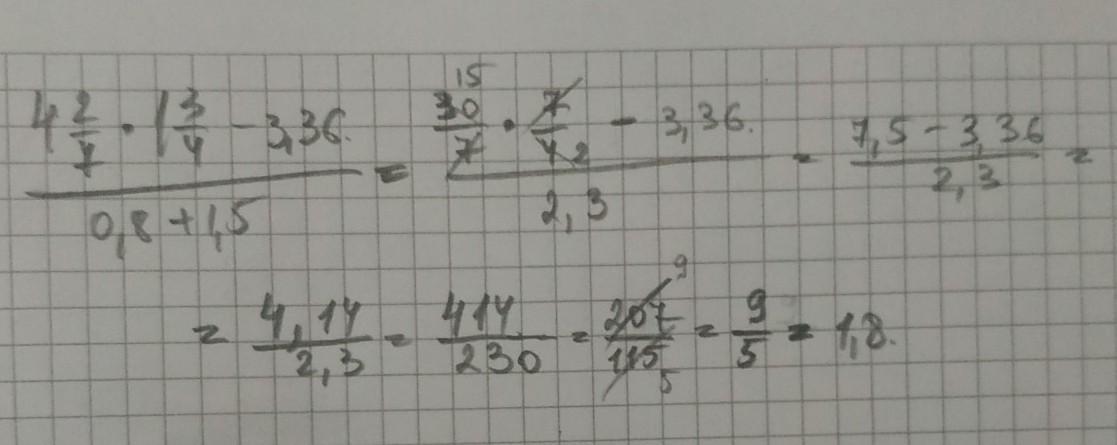 4 2/7 · 1 3/4 - 3,36. / 0,8 + 1,5 = 30/7 15 · 7/4 2 - 3,36. / 2,3 = 7,5 - 3,36 / 2,3 =
= 4,14 / 2,3 = 414 / 230 = 207 9 / 115 5 = 9 / 5 = 1,8.